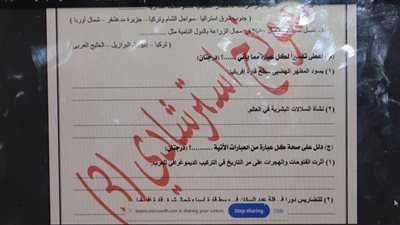 ( جنوب شرق استراليا - سواحل الشام وتركيا - جزيرة مدغشقر - شمال أوربا )
مجال الزراعة بالدول النامية مثل
تركيا - البرازيل - الخليج العربي )
أعط تفسيراً لكل عبارة مما يأتي ......؟ (درجتان)
(١) يسود المظهر الهضبي سطح قارة إفريقيا.
(٢) نشأة السلالات البشرية في العالم.
(ج) دلل على صحة كل عبارة من العبارات الآتية ..........؟ (درجتان)
(١) أثرت الفتوحات والهجرات على مر التاريخ في التركيب الديموغرافي للعرب.
(٢) للتضاريس دورا في قلة عدد السكان
نموذج استرشادي (٣)
teams.microsoft.com is sharing your screen. Stop sharing Hide